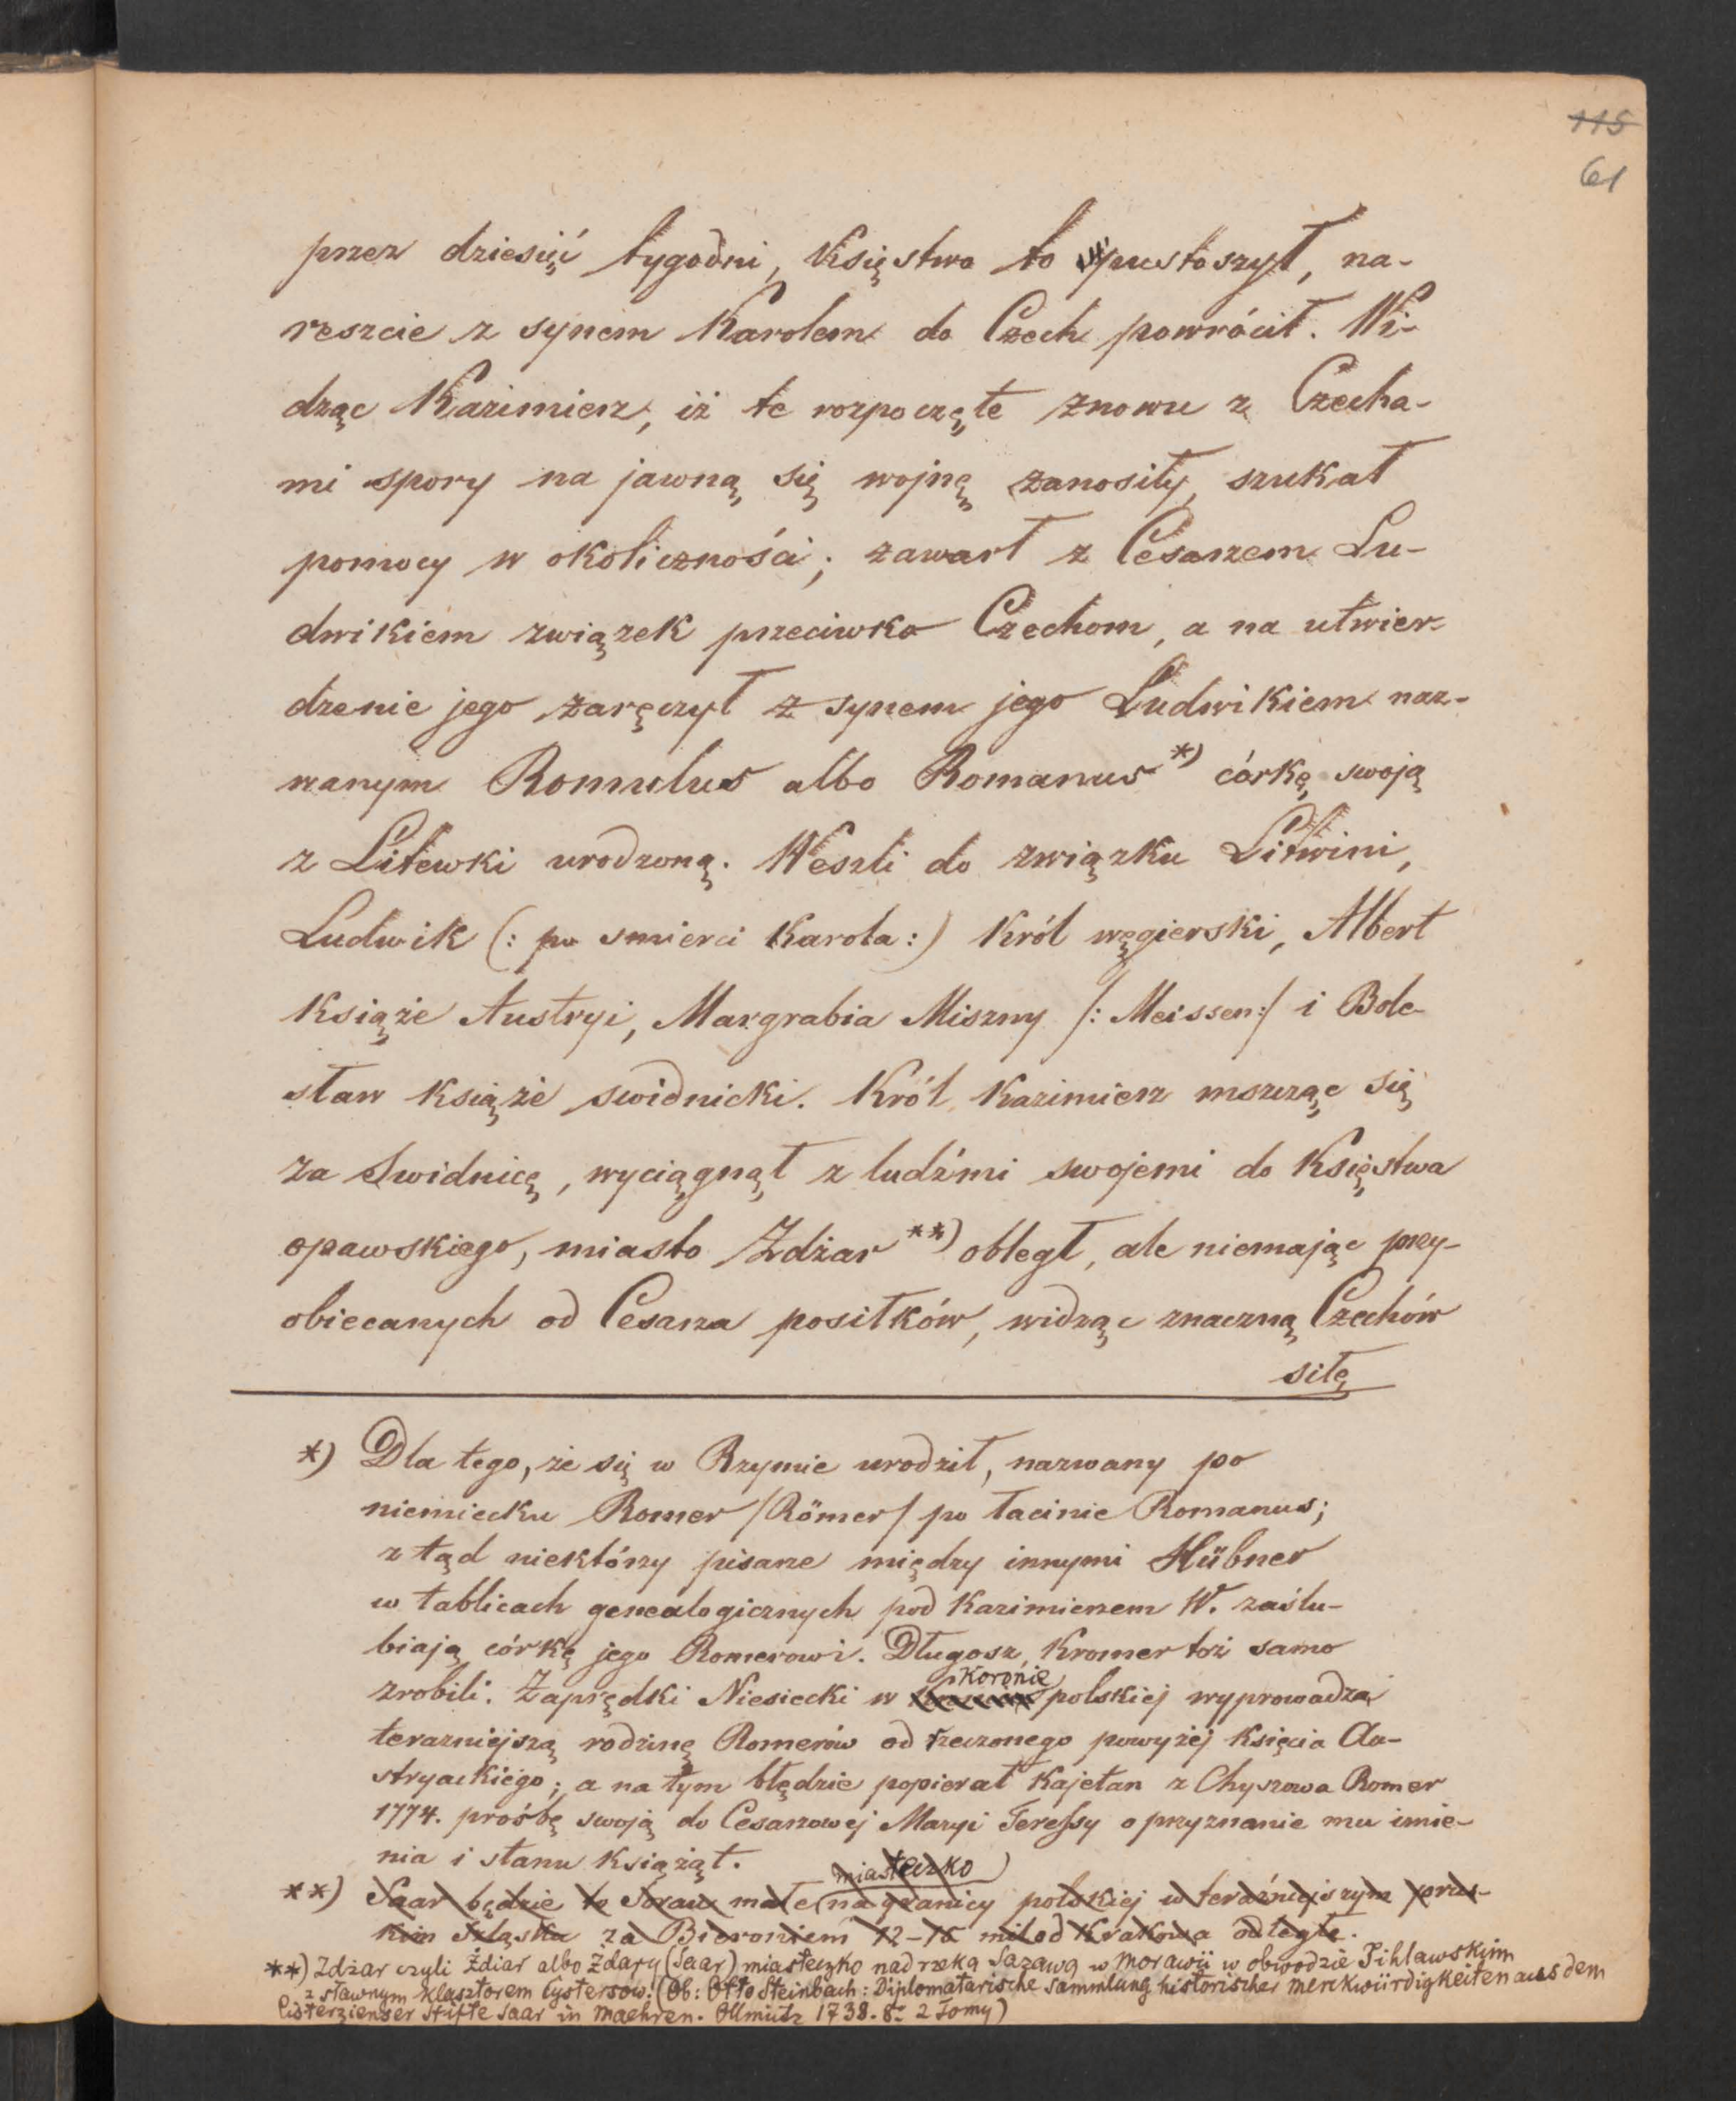 115
61
przez dziesięć tygodni, Księstwo to pustoszył, na-
reszcie z synem Karolem do Czech powrócił. Wi-
dząc Kazimierz, iż te rozpoczęte znowu z Czecha-
mi spory na jawną się wojnę zanosiły, szukał
pomocy w okoliczności; zawarł z Cesarzem Lu-
dwikiem związek przeciwko Czechom, a na utwier-
dzenie jego zaręczył z synem jego Ludwikiem naz-
wanym Romulus albo Romanus *) córkę swoją
z Litewki urodzoną. Weszli do związku Litwini,
Ludwik (: po smierci Karola :) Król węgierski, Albert
książe Austryi, Margrabia Miszny /: Meissen :/ i Bole-
sław książe swidnicki. Król Kazimierz mszcząc się
za Swidnicę, wyciągnął z ludźmi swojemi do Księstwa
opawskiego, miasto Zdżar **) obległ, ale niemając przy-
obiecanych od Cesarza posiłków, widząc znaczną Czechów
siłę
*) Dla tego, że się w Rzymie urodził, nazwany po
niemiecku Romer /Römer/ po łacinie Romanus;
z tąd niektórzy pisarze między innymi Hübner
w tablicach genealogicznych pod Kazimierzem W. zaślu-
biają córkę jego Romerowi. Długosz, Kromer toż samo
zrobili. Zaprędki Niesiecki w Koronie polskiej wyprowadza
terazniejszą rodzinę Romerów od rzeczonego powyżej księcia Au-
stryackiego; a na tym błędzie popierał Kajetan z Chyszowa Romer
1774. prośbę swoją do Cesarzowej Maryi Teressy o przyznanie mu imie-
nia i stanu książąt.
miasteczko
**) Saar będzie to Sorau małe na granicy polskiej w teraźniejszym prus-
kim Szląsku za Bieroniem 12-16 mil od Krakowa odległe.
**) Zdżar czyli Ždiar albo Zdary (Saar) miasteczko nad rzeką Sazawą w Morawii w obwodzie Jihlawskjm
z sławnym Klasztorem Cystersów. (Ob: Otto Steinbach: Diplomatarische Sammlung historischer Merckwürdigkeiten aus dem
Cisterzienser Stifte Saar in Maehren. Ollmütz 1738. 8º 2 Tomy)